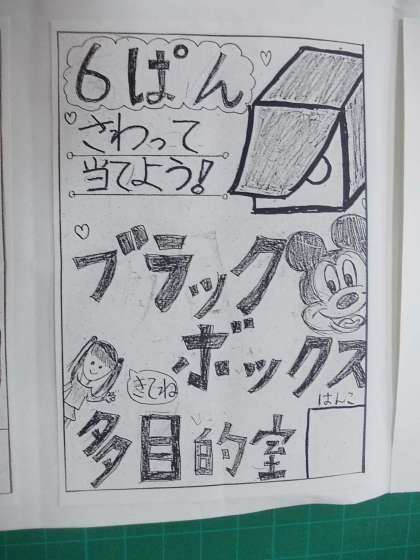 6ぱん
さわって
当てよう!
ブラック
ボックス
きてね
はんこ
多目的室